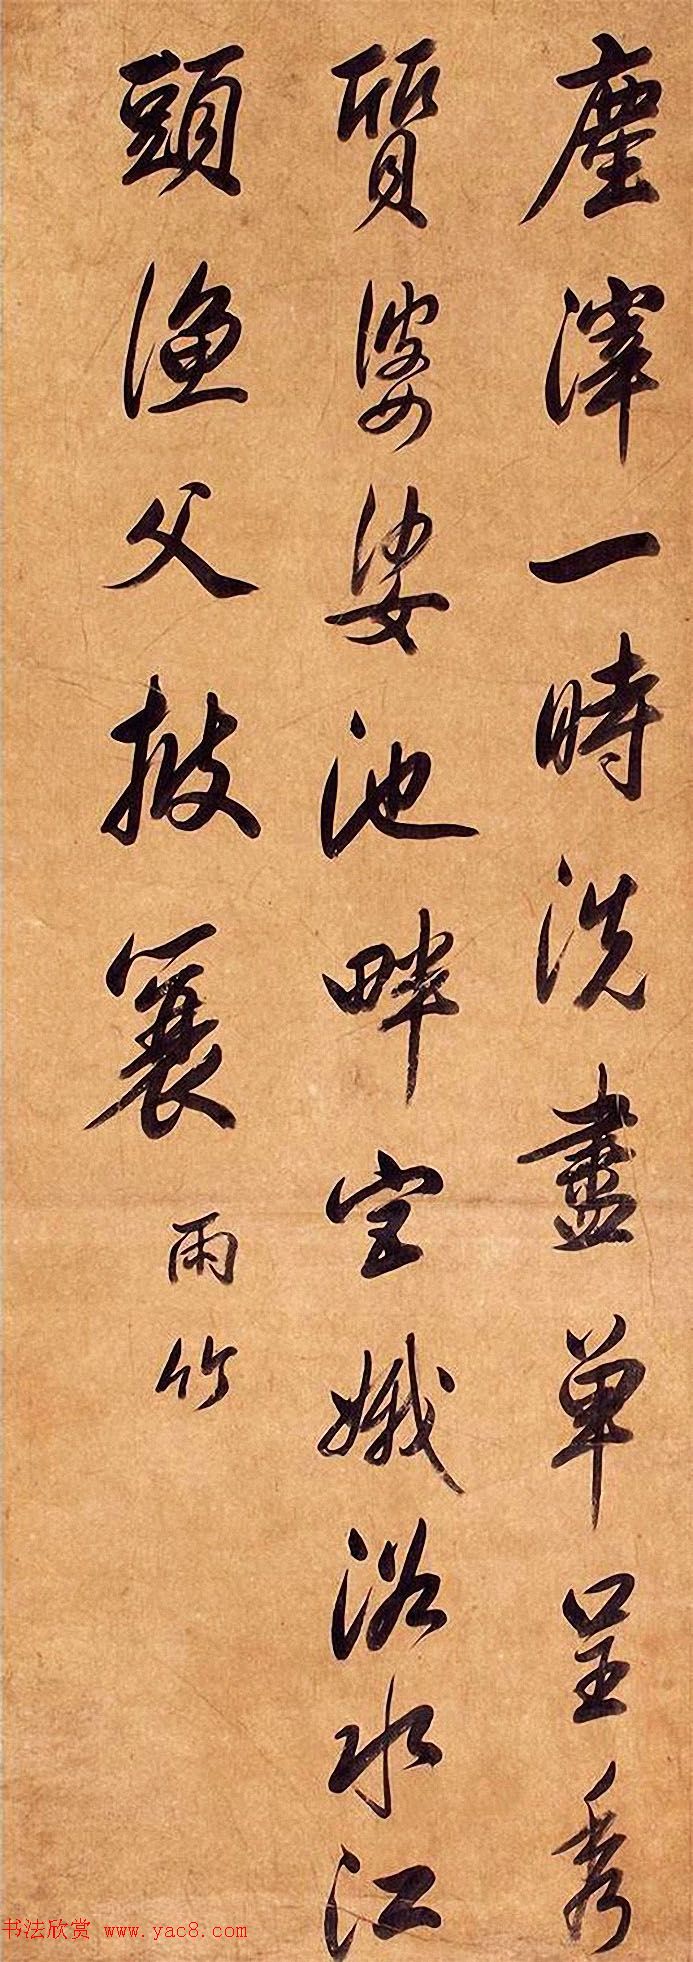 塵滓一時洗盡单呈秀
質婆娑池畔宮娥浴水江
頭漁父披蓑
雨竹
书法欣赏 www.yac8.com